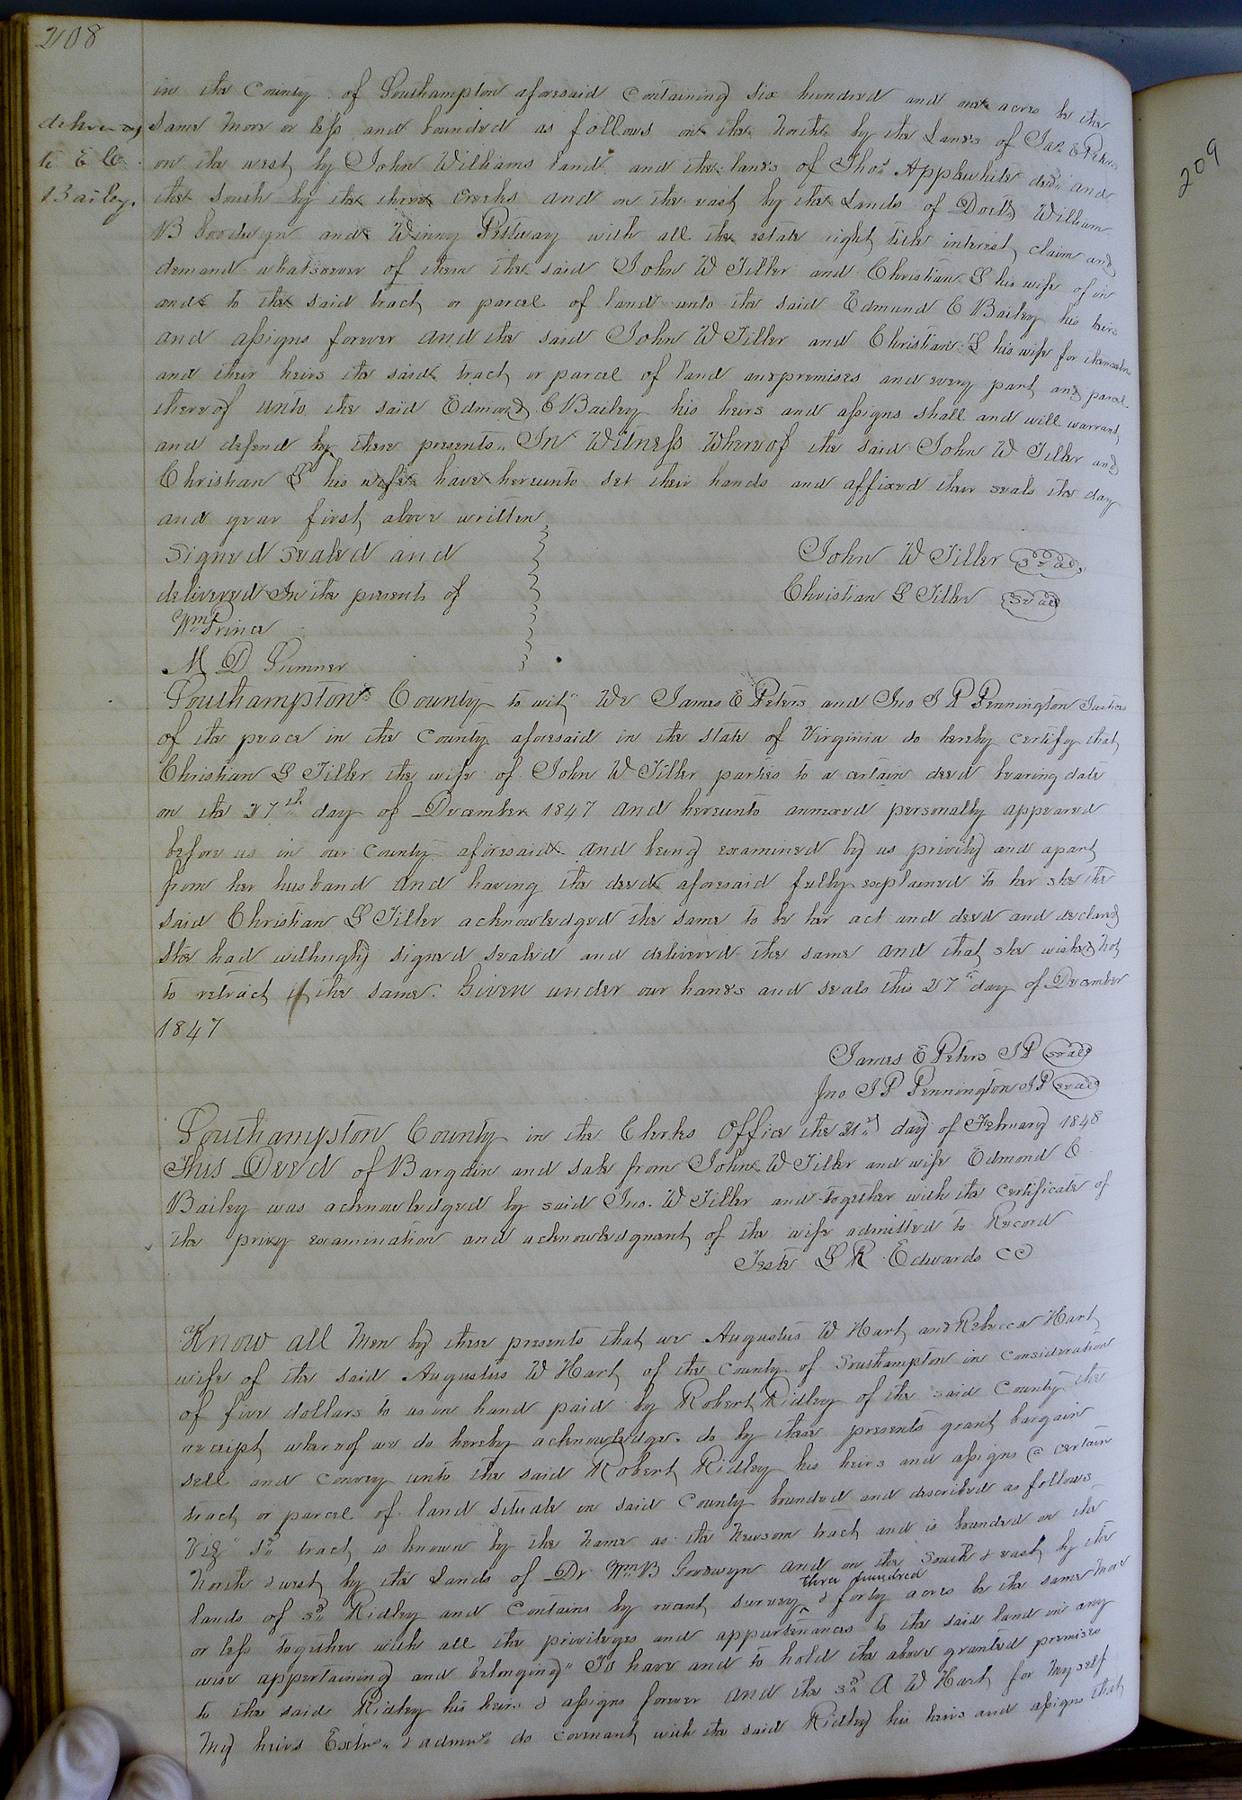 208
in the County of Southampton aforesaid Containing six hundred and one acres be the
delivered
same more or less and bounded as follows on the North by the Lands of Jas E Peters
to E C
on the west by John Williams land and the lands of Thos Applewhite decd and
Bailey.
the South by the three Creeks and on the east by the Lands of Doctr William
B Goodwyn and Winny Pettway with all the estate right title interest claim and
demand whatsoever of them the said John W Tiller and Christian L his wife of in
and to the said tract or parcel of land unto the said Edmund C Bailey his heirs
and assigns forever And the said John W Tiller and Christian L his wife for themselves
and their heirs the said tract or parcel of land and premises and every part and parcel
thereof unto the said Edmond C Bailey his heirs and assigns shall and will warrant
and defend by these presents" In Witness Whereof the said John W Tiller and
Christian L his wife have hereunto set their hands and affixed their seals the day
and year first above written
Signed Sealed and
John W Tiller Seal
delivered In the presents of
Christian L Tiller Seal
Wm Prince
M D Sumner
Southampton County to wit" We James E Peters and Jno J P Pennington Justices
of the peace in the County aforesaid in the State of Virginia do hereby certify that
Christian L Tiller the wife of John W Tiller parties to a certain deed bearing date
on the 27th day of December 1847 and hereunto annexed personally appeared
before us in our County aforesaid and being examined by us privily and apart
from her husband and having the deed aforesaid fully explained to her she the
said Christian L Tiller acknowledged the same to be her act and deed and declared
She had willingly signed sealed and delivered the same and that she wished not
to retract the same. Given under our hands and seals this 27th day of December
1847
James E Peters JP Seal
Jno J P Pennington JP Seal
Southampton County in the Clerks Office the 21st day of February 1848
This Deed of Bargain and sale from John W Tiller and wife Edmond C
Bailey was acknowledged by said Jno. W Tiller and together with the certificate of
the privy examination and acknowledgment of the wife admitted to Record
Teste L R Edwards CC
Know all Men by these presents that we Augustus W Hart and Rebecca Hart
wife of the said Augustus W Hart of the County of Southampton in consideration
of five dollars to us in hand paid by Robert Ridley of the said County the
receipt whereof we do hereby acknowledge. do by these presents grant bargain
sell and convey unto the said Robert Ridley his heirs and assigns a certain
tract or parcel of land situate in said County bounded and described as follows
Viz" sd tract is known by the name as the Newsom tract and is bounded on the
North & west by the Lands of Dr Wm B Goodwyn and on the South & east by the
three hundred
lands of sd Ridley and Contains by recent survey & forty acres be the same more
or less together with all the privileges and appurtenances to the said land in any
wise appertaining and belonging" To have and to hold the above granted premises
to the said Ridley his heirs & assigns forever And the sd A W Hart for myself
My heirs Extrs" & admrs do covenant with the said Ridley his heirs and assigns that
209